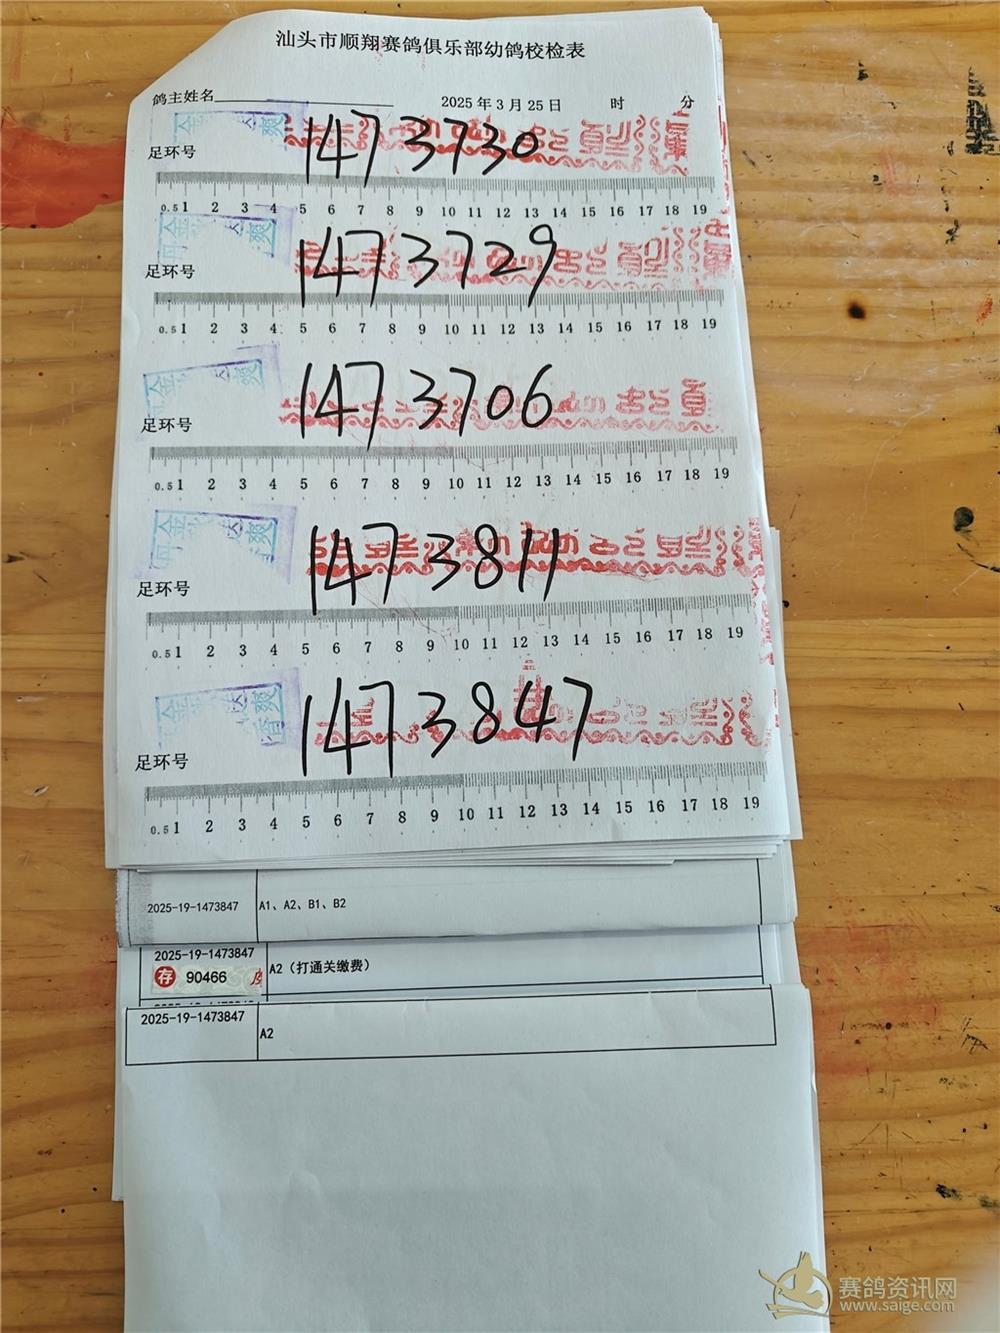 汕头市顺翔赛鸽俱乐部幼鸽校检表
鸽主姓名 2025年3月25日 时 分
足环号 1473730
0.5 1 2 3 4 5 6 7 8 9 10 11 12 13 14 15 16 17 18 19
足环号 1473729
0.5 1 2 3 4 5 6 7 8 9 10 11 12 13 14 15 16 17 18 19
足环号 1473706
0.5 1 2 3 4 5 6 7 8 9 10 11 12 13 14 15 16 17 18 19
足环号 1473811
0.5 1 2 3 4 5 6 7 8 9 10 11 12 13 14 15 16 17 18 19
足环号 1473847
0.5 1 2 3 4 5 6 7 8 9 10 11 12 13 14 15 16 17 18 19
2025-19-1473847 A1、A2、B1、B2
2025-19-1473847
存 90466
A2（打通关缴费）
2025-19-1473847
A2
赛鸽资讯网
www.saige.com